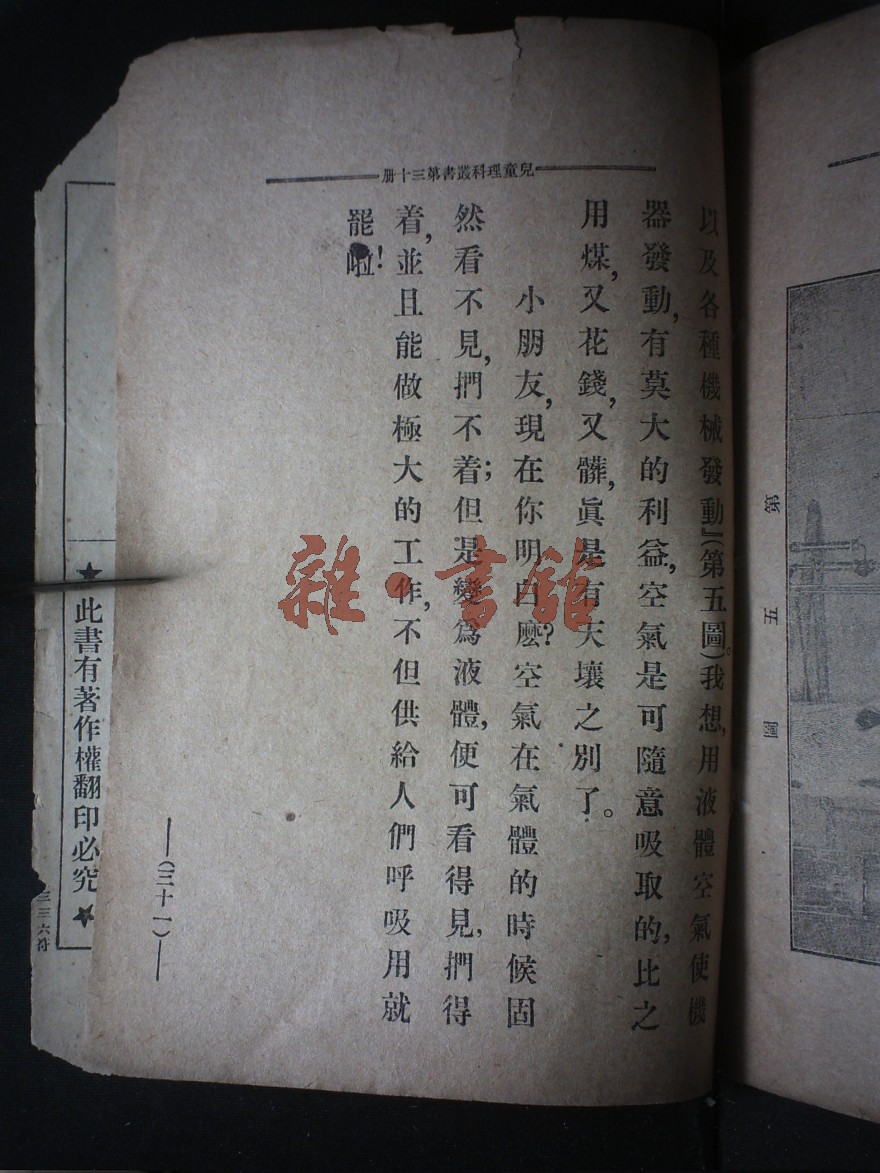 兒童理科叢書第三十册
以及各種機械發動』(第五圖。)我想,用液體空氣使機
器發動,有莫大的利益,空氣是可隨意吸取的,比之
用煤,又花錢,又髒,眞是有天壤之別了。
小朋友,現在你明白麼?空氣在氣體的時候固
然看不見,捫不着;但是變爲液體,便可看得見,捫得
着,並且能做極大的工作,不但供給人們呼吸用就
罷啦!
—(三十一)—
第五圖
★此書有著作權翻印必究★
三三六符
雜·書館